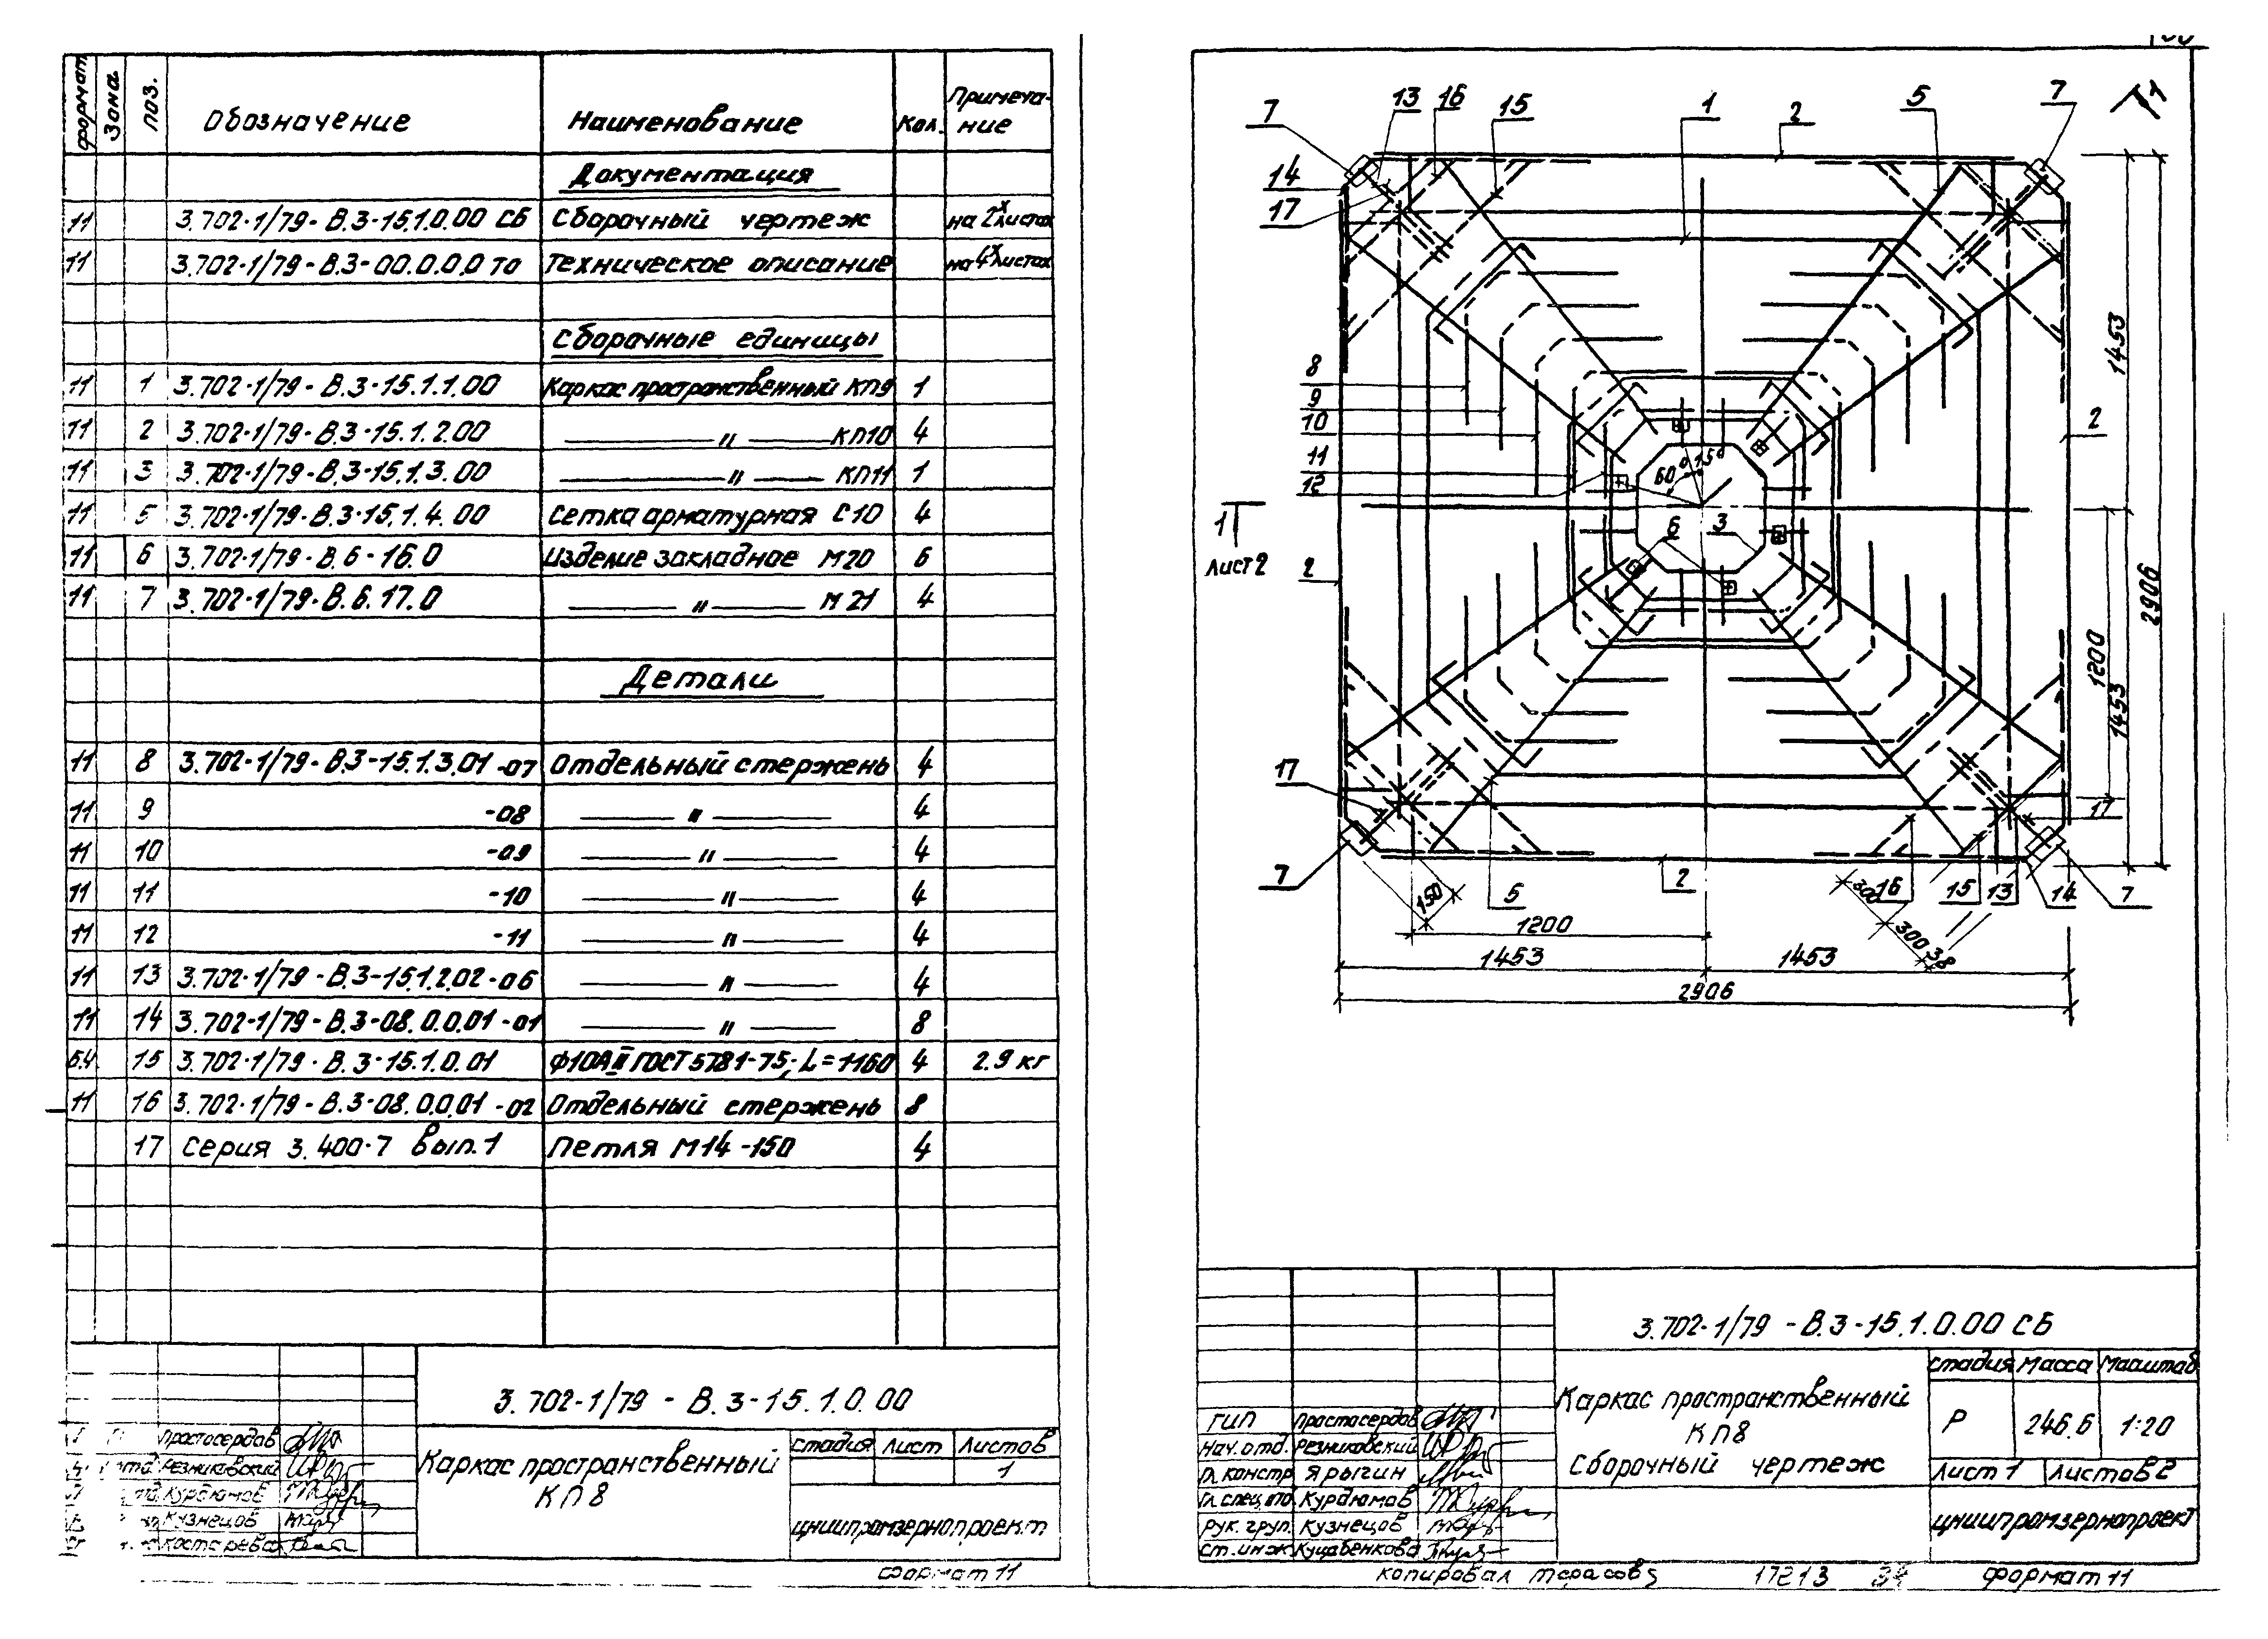 формат Зона поз. Обозначение Наименование Кол. Примеча-
ние
Документация
11 3.702-1/79-В.3-15.1.0.00 СБ Сборочный чертеж на 2х листах
11 3.702-1/79-В.3-00.0.0.0 ТО Техническое описание на 4х листах
Сборочные единицы
11 1 3.702-1/79-В.3-15.1.1.00 Каркас пространственный КП9 1
11 2 3.702-1/79-В.3-15.1.2.00 — " — КП10 4
11 3 3.702-1/79-В.3-15.1.3.00 — " — КП11 1
11 5 3.702-1/79-В.3-15.1.4.00 Сетка арматурная С10 4
11 6 3.702-1/79-В.6-16.0 Изделие закладное М20 6
11 7 3.702-1/79-В.6.17.0 — " — М21 4
Детали
11 8 3.702-1/79-В.3-15.1.3.01-07 Отдельный стержень 4
11 9 -08 — " — 4
11 10 -09 — " — 4
11 11 -10 — " — 4
11 12 -11 — " — 4
11 13 3.702-1/79-В.3-15.1.2.02-06 — " — 4
11 14 3.702-1/79-В.3-08.0.0.01-01 — " — 8
Б.Ч. 15 3.702-1/79-В.3-15.1.0.01 Ф10АII ГОСТ 5781-75; L=1160 4 2.9 кг
11 16 3.702-1/79-В.3-08.0.0.01-02 Отдельный стержень 8
17 Серия 3.400-7 вып.1 Петля М14-150 4
3.702-1/79-В.3-15.1.0.00
Простосердов
Резниковский
Курдюмов
Кузнецов
Костарева
Каркас пространственный
КП8
Стадия Лист Листов
1
ЦНИИпромзернопроект
формат 11
7 13 16 15 1 2 5 7
14
17
1
8
9
10
11
12
60° 15°
6 3
1
Лист 2
2
2
1453
2906
1200
1453
17
17
7
5
2
16 15 13 14 7
150
1200
300
300
38
1453 1453
2906
3.702-1/79-В.3-15.1.0.00 СБ
Каркас пространственный
КП8
Сборочный чертеж
Стадия Масса Масштаб
Р 246.6 1:20
Лист 1 Листов 2
ЦНИИпромзернопроект
ГИП Простосердов
Нач.отд. Резниковский
Гл. констр. Ярыгин
Гл. спец. отд. Курдюмов
Рук. груп. Кузнецов
Ст. инж. Куцабенкова
Копировал Тарасова 17213 формат 11